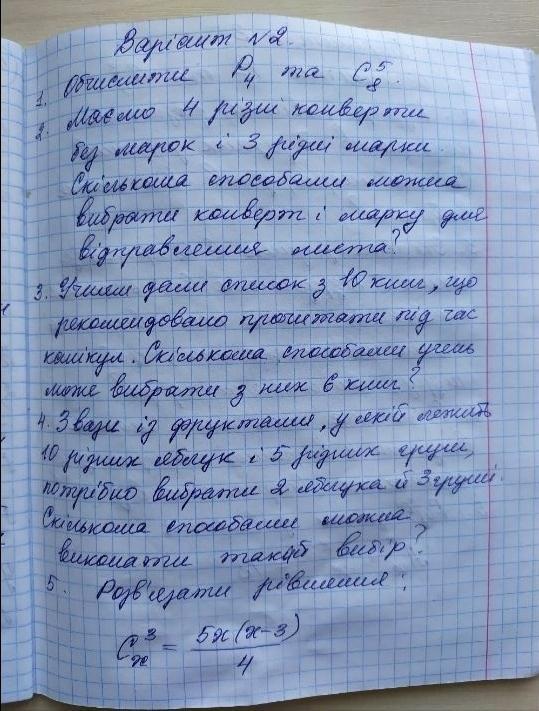 Варіант №2.
1. Обчислити P₄ та C₈⁵.
2. Маємо 4 різні конверти
без марок і 3 різні марки.
Скількома способами можна
вибрати конверт і марку для
відправлення листа?
3. Учням дали список з 10 книг, що
рекомендовано прочитати під час
канікул. Скількома способами учень
може вибрати з них 6 книг?
4. З вази із фруктами, у якій лежить
10 різних яблук і 5 різних груш,
потрібно вибрати 2 яблука й 3 груші.
Скількома способами можна
виконати такий вибір?
5. Розв'язати рівняння:
Cₓ³ = 5x(x-3)/4